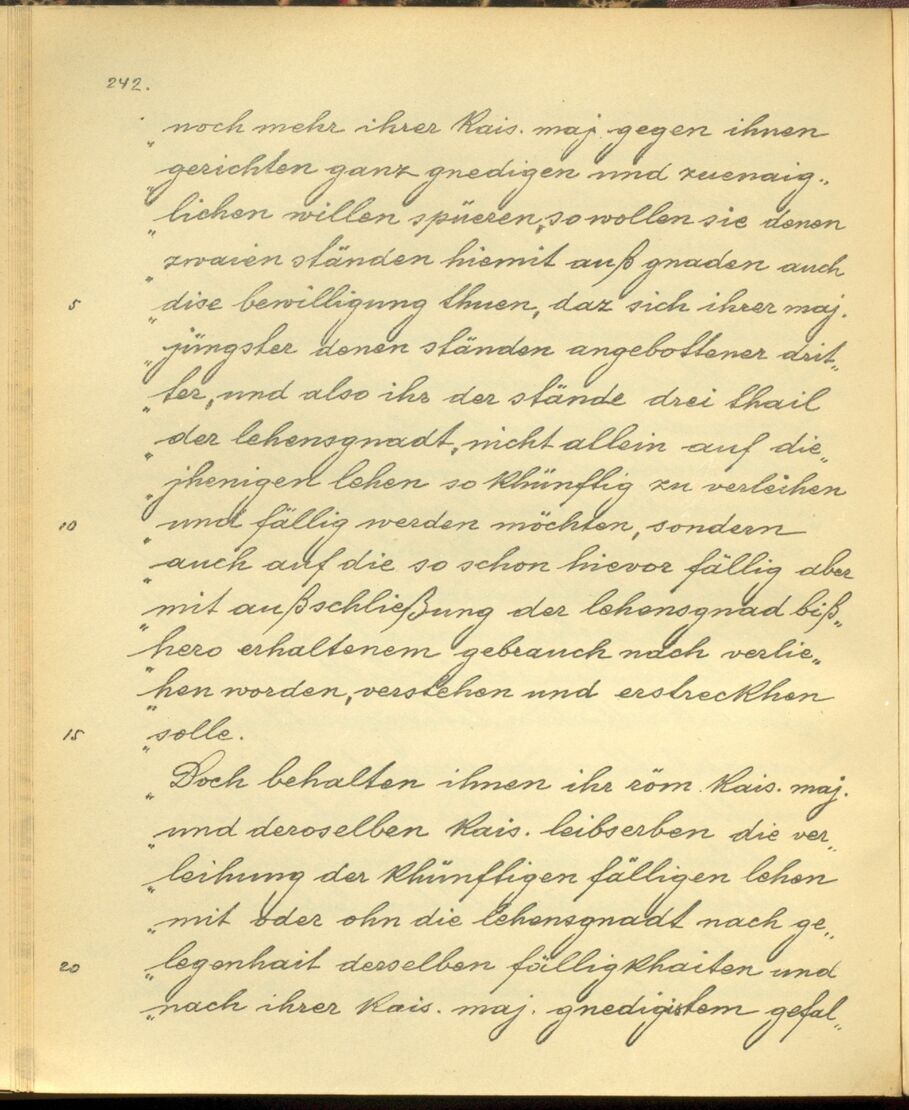 242.
„noch mehr ihrer Kais. maj. gegen ihnen
„gerichten ganz gnedigen und zuenaig„
„lichen willen spüeren, so wollen sie denen
„zwaien ständen hiemit auß gnaden auch
5 „dise bewilligung thuen, daz sich ihrer maj.
„jüngster denen ständen angebottener drit„
„ter, und also ihr der stände drei thail
„der lehensgnadt, nicht allein auf die„
„jhenigen lehen so khünftig zu verleihen
10 „und fällig werden möchten, sondern
„auch auf die so schon hievor fällig aber
„mit außschließung der lehensgnad biß„
„hero erhaltenem gebrauch nach verlie„
„hen worden, verstehen und erstreckhen
15 „solle.
„Doch behalten ihnen ihr röm. Kais. maj.
„und deroselben Kais. leibserben die ver„
„leihung der khünftigen fälligen lehen
„mit oder ohn die lehensgnadt nach ge„
20 „legenhait derselben fälligkhaiten und
„nach ihrer Kais. maj. gnedigistem gefal„